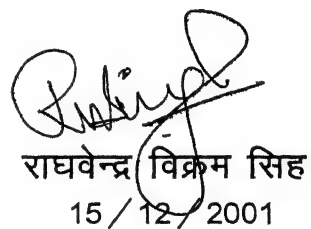 राघवेन्द्र विक्रम सिंह
15 / 12 / 2001